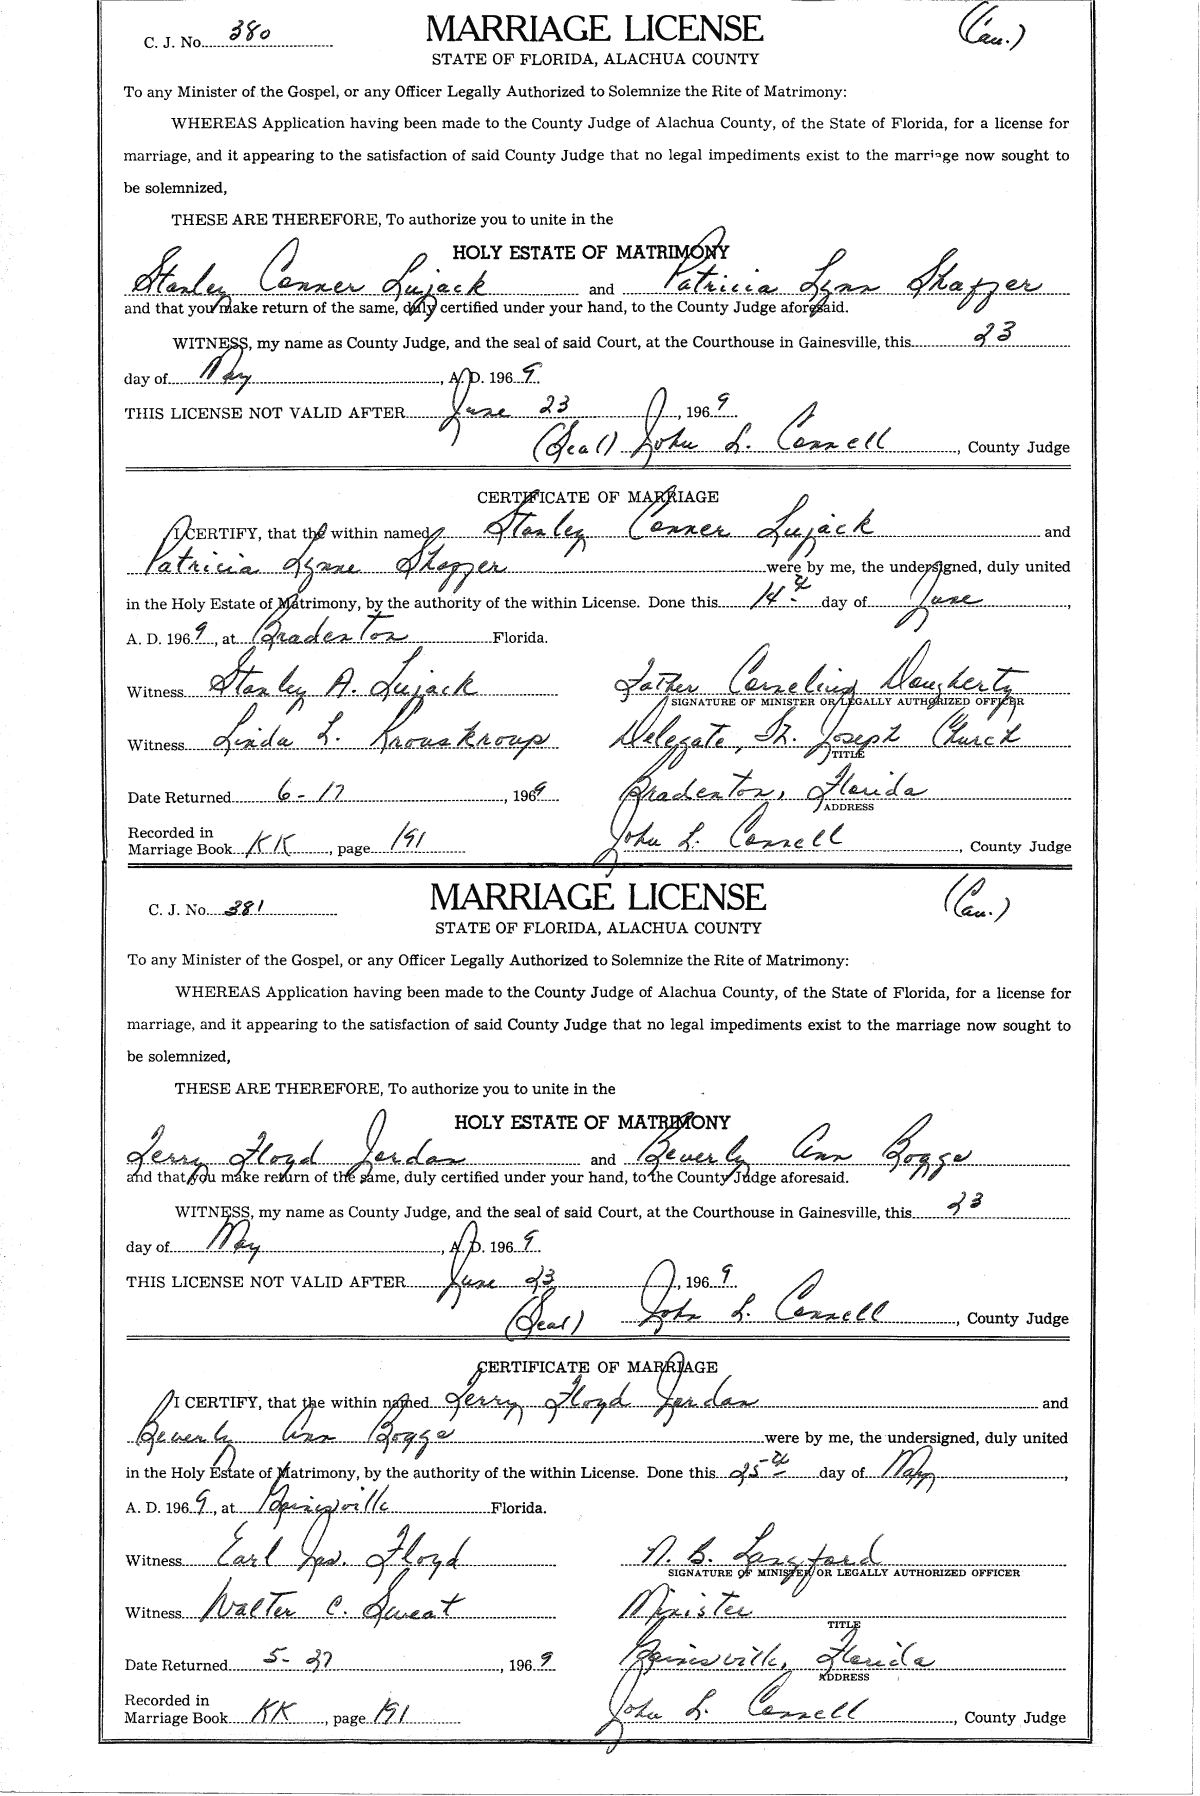 C. J. No. 380 MARRIAGE LICENSE (Cau.)
STATE OF FLORIDA, ALACHUA COUNTY
To any Minister of the Gospel, or any Officer Legally Authorized to Solemnize the Rite of Matrimony:
WHEREAS Application having been made to the County Judge of Alachua County, of the State of Florida, for a license for
marriage, and it appearing to the satisfaction of said County Judge that no legal impediments exist to the marriage now sought to
be solemnized,
THESE ARE THEREFORE, To authorize you to unite in the
HOLY ESTATE OF MATRIMONY
Stanley Conner Lujack and Patricia Lynn Shaffer
and that you make return of the same, duly certified under your hand, to the County Judge aforesaid.
WITNESS, my name as County Judge, and the seal of said Court, at the Courthouse in Gainesville, this 23
day of May, A. D. 196 9
THIS LICENSE NOT VALID AFTER June 23, 196 9
(Seal) John L. Connell, County Judge
CERTIFICATE OF MARRIAGE
I CERTIFY, that the within named Stanley Conner Lujack and
Patricia Lynne Shaffer were by me, the undersigned, duly united
in the Holy Estate of Matrimony, by the authority of the within License. Done this 14th day of June,
A. D. 196 9, at Bradenton Florida.
Witness Stanley A. Lujack Father Cornelius Dougherty
SIGNATURE OF MINISTER OR LEGALLY AUTHORIZED OFFICER
Witness Linda L. Krouskroup Delegate, St. Joseph Church
TITLE
Date Returned 6-17, 1969 Bradenton, Florida
ADDRESS
Recorded in
Marriage Book KK, page 191 John L. Connell, County Judge
C. J. No. 381 MARRIAGE LICENSE (Cau.)
STATE OF FLORIDA, ALACHUA COUNTY
To any Minister of the Gospel, or any Officer Legally Authorized to Solemnize the Rite of Matrimony:
WHEREAS Application having been made to the County Judge of Alachua County, of the State of Florida, for a license for
marriage, and it appearing to the satisfaction of said County Judge that no legal impediments exist to the marriage now sought to
be solemnized,
THESE ARE THEREFORE, To authorize you to unite in the
HOLY ESTATE OF MATRIMONY
Terry Floyd Jordan and Beverly Ann Boggs
and that you make return of the same, duly certified under your hand, to the County Judge aforesaid.
WITNESS, my name as County Judge, and the seal of said Court, at the Courthouse in Gainesville, this 23
day of May, A. D. 196 9
THIS LICENSE NOT VALID AFTER June 23, 196 9
(Seal) John L. Connell, County Judge
CERTIFICATE OF MARRIAGE
I CERTIFY, that the within named Terry Floyd Jordan and
Beverly Ann Boggs were by me, the undersigned, duly united
in the Holy Estate of Matrimony, by the authority of the within License. Done this 25th day of May,
A. D. 196 9, at Gainesville Florida.
Witness Earl Jas. Floyd N. B. Langford
SIGNATURE OF MINISTER OR LEGALLY AUTHORIZED OFFICER
Witness Walter C. Sweat Minister
TITLE
Date Returned 5-27, 196 9 Gainesville, Florida
ADDRESS
Recorded in
Marriage Book KK, page 191 John L. Connell, County Judge